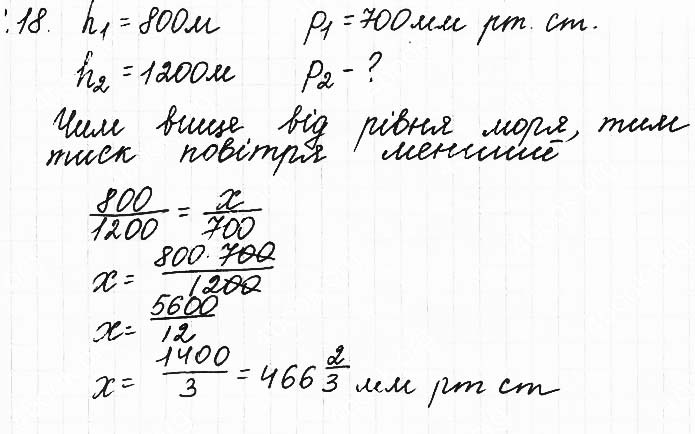 :18. h₁ = 800м p₁ = 700мм рт. ст.
h₂ = 1200м p₂ - ?
Чим вище від рівня моря, тим
тиск повітря менший
800/1200 = x/700
x = 800·700/1200
x = 5600/12
x = 1400/3 = 466 2/3 мм рт ст